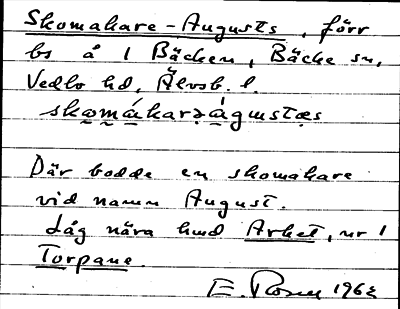 Skomakare-Augusts, förr
bs å 1 Bäcken, Bäcke sn,
Vedbo hd, Älvsb. l.
skǫmákarə águstəs
Där bodde en skomakare
vid namn August.
Låg nära hmd Arket, nr 1
Torpane.
E. Rosen 1962